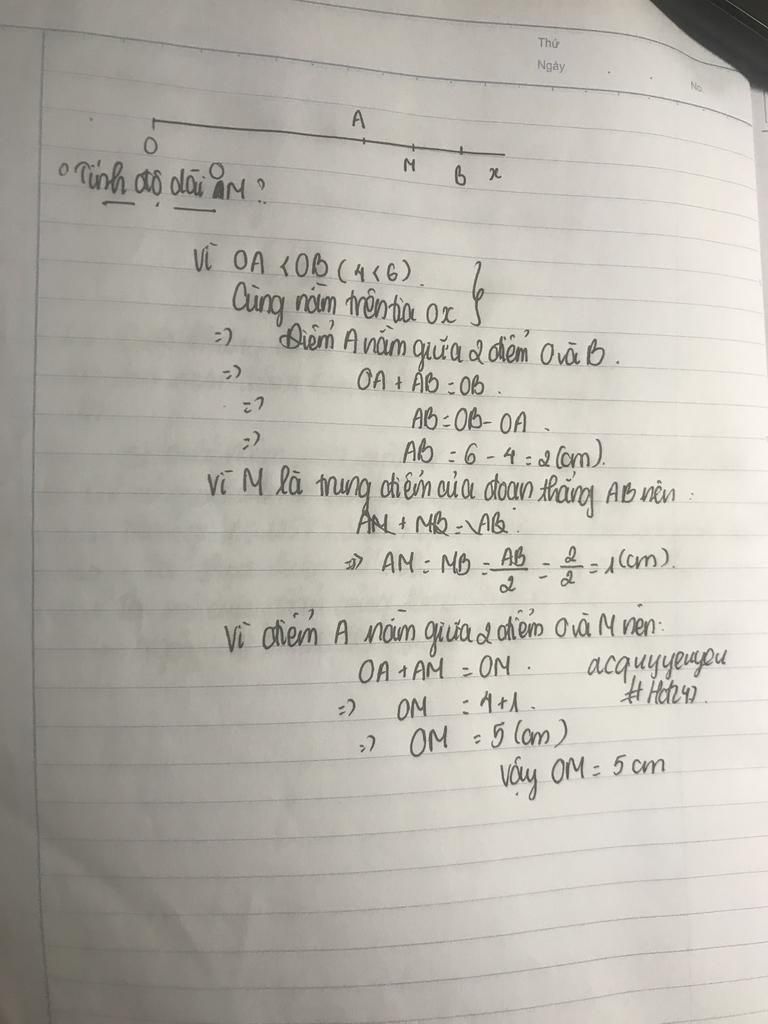 Thứ
Ngày
No.
A
O
M
B
x
Tính độ dài OM?
Vì OA < OB (4<6).
Cùng nằm trên tia Ox
=> Điểm A nằm giữa 2 điểm O và B.
=> OA + AB = OB.
=> AB = OB - OA.
=> AB = 6 - 4 = 2 (cm).
Vì M là trung điểm của đoạn thẳng AB nên:
AM + MB = AB.
=> AM = MB = AB/2 = 2/2 = 1 (cm).
Vì điểm A nằm giữa 2 điểm O và M nên:
OA + AM = OM.
acquyyeuyou
=> OM = 4+1.
=> OM = 5 (cm)
Vậy OM = 5 cm